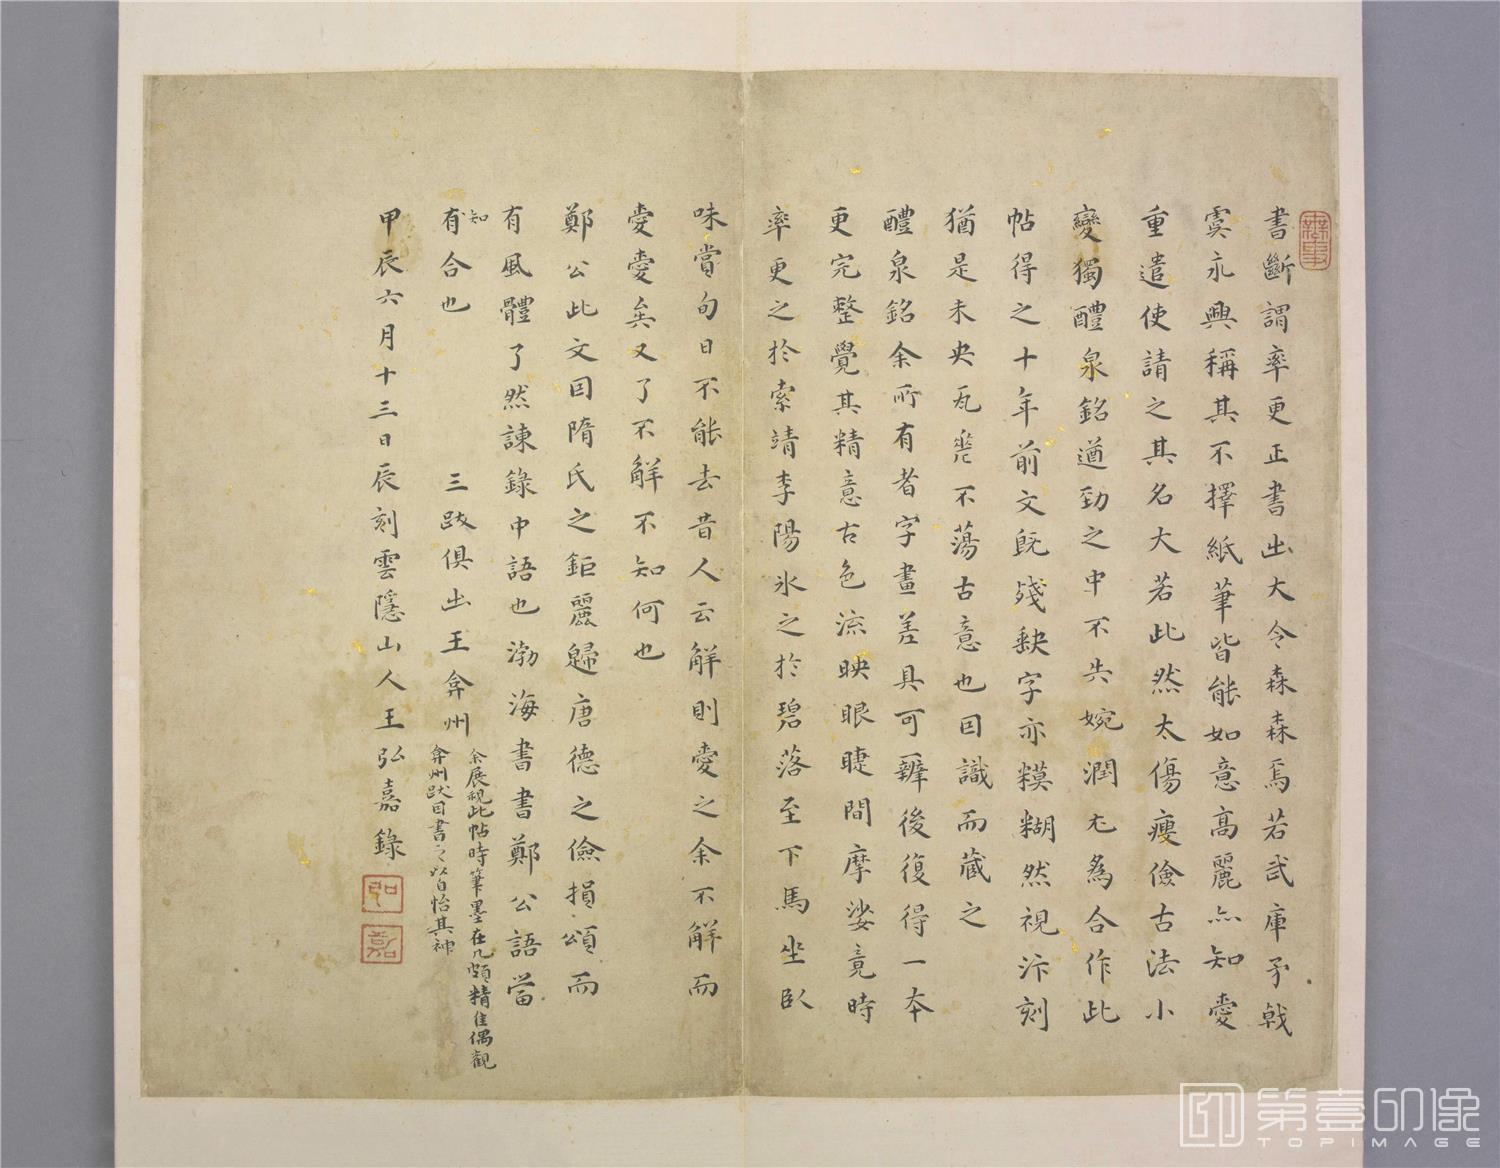 書斷謂率更正書出大令森森焉若武庫矛戟
虞永興稱其不擇紙筆皆能如意高麗亦知愛
重遣使請之其名大若此然太傷瘦儉古法小
變獨醴泉銘遒勁之中不失婉潤尤為合作此
帖得之十年前文既殘缺字亦糢糊然視汴刻
猶是未央瓦甃不蕩古意也因識而藏之
醴泉銘余所有者字畫差具可辨後復得一本
更完整覺其精意古色流映眼睫間摩娑竟時
率更之於索靖李陽氷之於碧落至下馬坐臥
味賞旬日不能去昔人云解則愛之余不解而
愛愛矣又了不解不知何也
鄭公此文因隋氏之鉅麗歸唐德之儉損頌而
有風體了然諫錄中語也渤海書書鄭公語當
知
有合也
三跋俱出王弇州
余展視此帖時筆墨在几頗精佳偶觀
弇州跋因書之以自怡其神
甲辰六月十三日辰刻雲隱山人王弘嘉錄
弘
嘉
第壹印像
TOPIMAGE